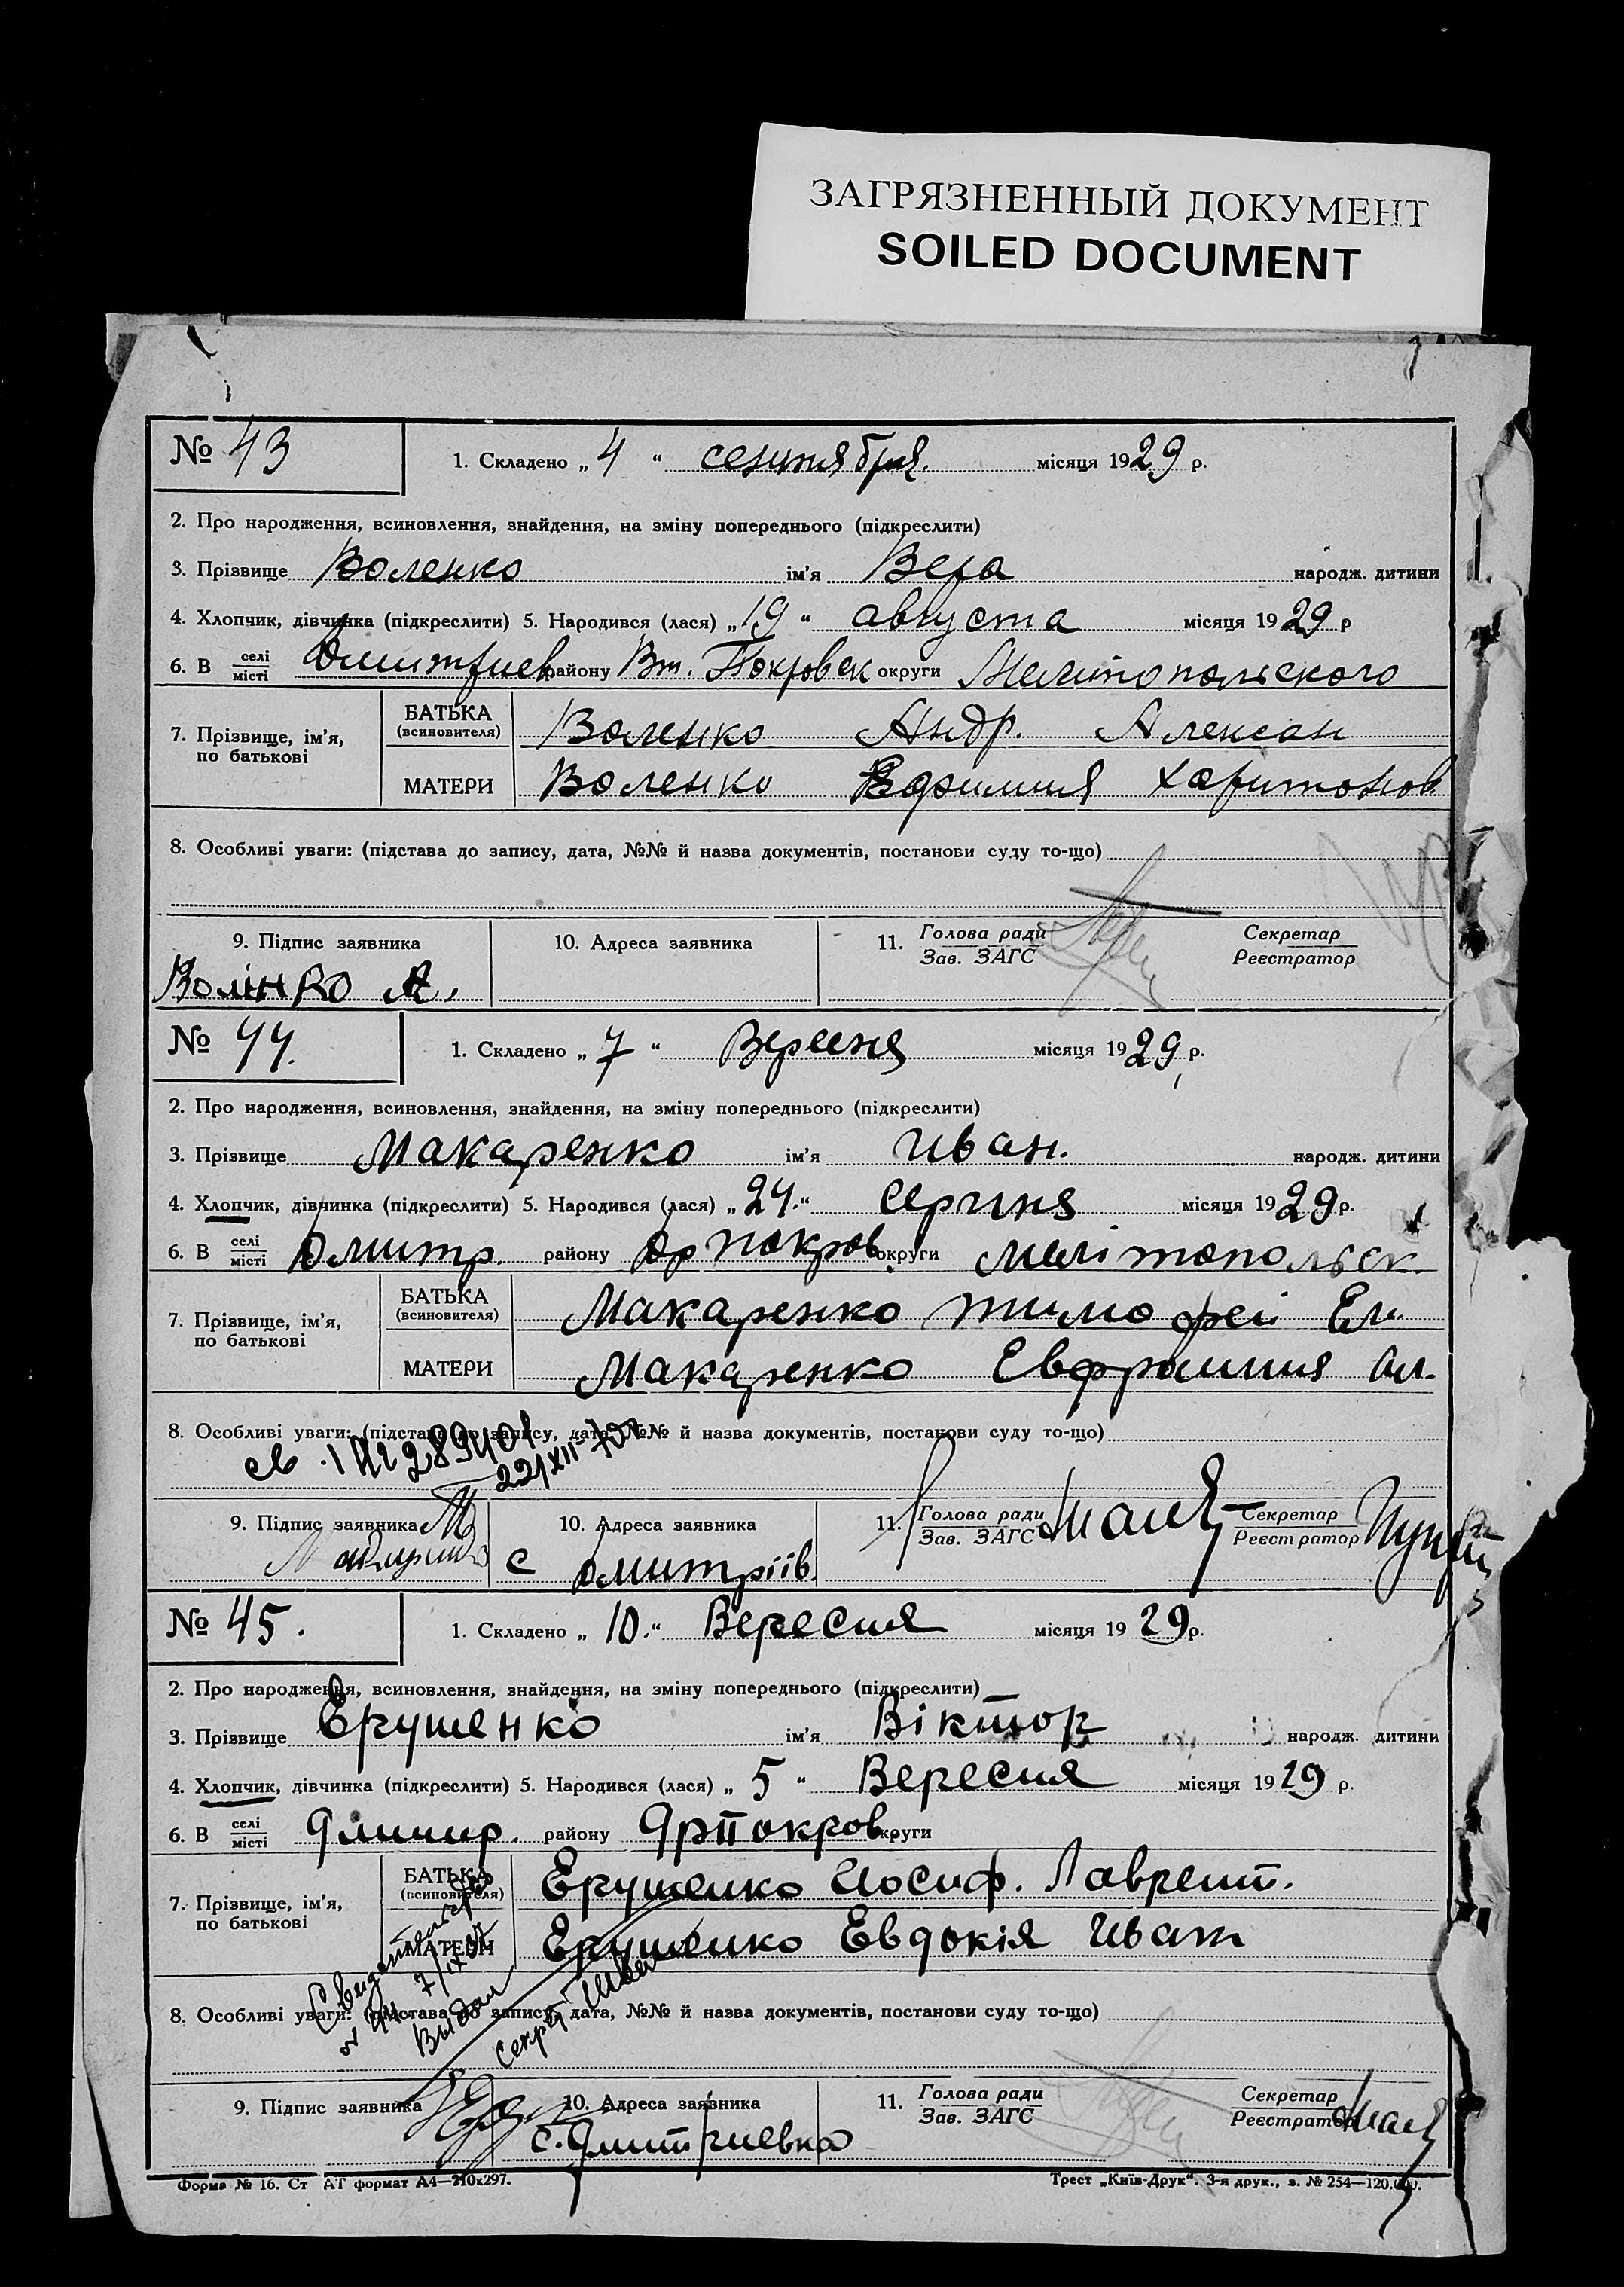 ЗАГРЯЗНЕННЫЙ ДОКУМЕНТ
SOILED DOCUMENT
№ 43
1. Складено „ 4 “ сентября. місяця 1929 р.
2. Про народження, всиновлення, знайдення, на зміну попереднього (підкреслити)
3. Прізвище Воленко ім'я Вера народж. дитини
4. Хлопчик, дівчинка (підкреслити) 5. Народився (лася) „ 19 “ августа місяця 1929 р
6. В селі місті Дмитриев району Вт. Покровск округи Мелитопольского
7. Прізвище, ім'я, по батькові
БАТЬКА (всиновителя) Воленко Андр. Алексан
МАТЕРИ Воленко Ефимия Харитонов
8. Особливі уваги: (підстава до запису, дата, №№ й назва документів, постанови суду то-що)
9. Підпис заявника
10. Адреса заявника
11. Голова ради Зав. ЗАГС
Секретар Реєстратор
Волінко А.
№ 44.
1. Складено „ 7 “ Вересня місяця 1929 р.
2. Про народження, всиновлення, знайдення, на зміну попереднього (підкреслити)
3. Прізвище Макаренко ім'я Иван. народж. дитини
4. Хлопчик, дівчинка (підкреслити) 5. Народився (лася) „ 24. “ Серпня місяця 1929 р.
6. В селі місті Дмитр. району Др Покров. округи Мелітопольск.
7. Прізвище, ім'я, по батькові
БАТЬКА (всиновителя) Макаренко Тимофей Ем.
МАТЕРИ Макаренко Евфросиния
8. Особливі уваги: (підстава до запису, дата, №№ й назва документів, постанови суду то-що)
9. Підпис заявника
10. Адреса заявника
11. Голова ради Зав. ЗАГС
Секретар Реєстратор
с Дмитріїв.
№ 45.
1. Складено „ 10. “ Вересня місяця 1929 р.
2. Про народження, всиновлення, знайдення, на зміну попереднього (підкреслити)
3. Прізвище Ерушенко ім'я Віктор народж. дитини
4. Хлопчик, дівчинка (підкреслити) 5. Народився (лася) „ 5 “ Вересня місяця 1929 р.
6. В селі місті Дмитр. району ДрПокров округи
7. Прізвище, ім'я, по батькові
БАТЬКА (всиновителя) Ерушенко Иосиф. Лаврент.
МАТЕРИ Ерушенко Евдокія Иван
8. Особливі уваги: (підстава до запису, дата, №№ й назва документів, постанови суду то-що)
Выдал
9. Підпис заявника
10. Адреса заявника
11. Голова ради Зав. ЗАГС
Секретар Реєстратор
с. Дмитриевка
Форма № 16. Ст АТ формат А4—210х297.
Трест „Київ-Друк“. 3-я друк., з. № 254—120.000.